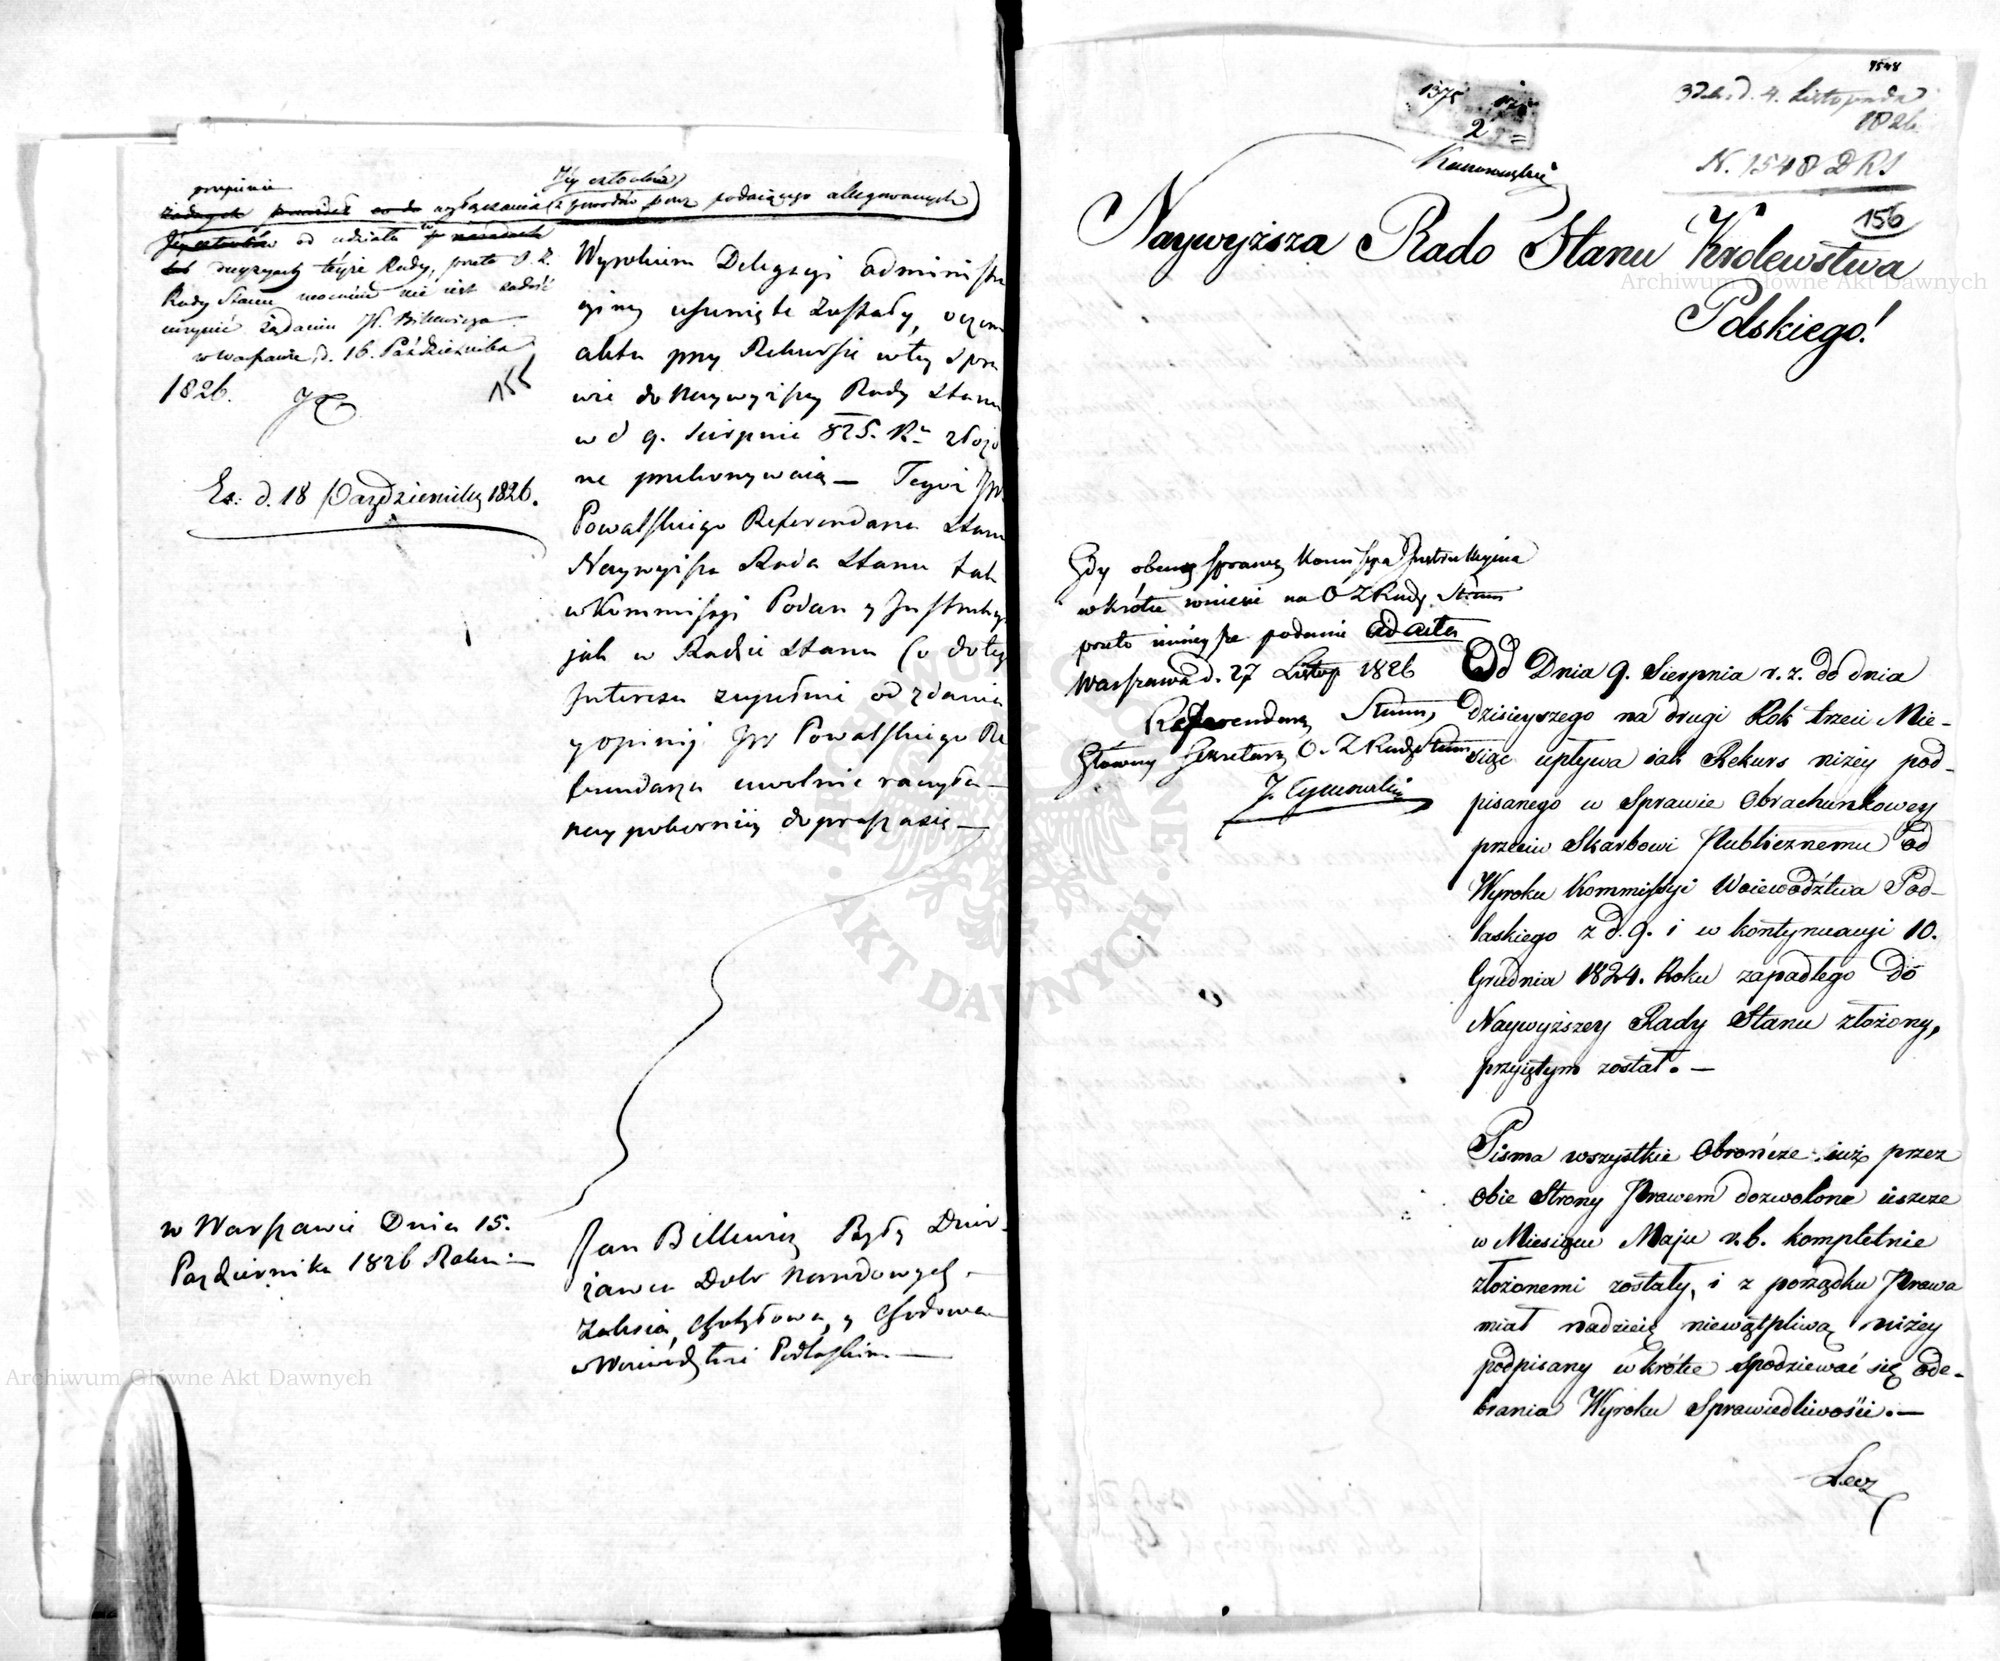 przepisie
żadnych
wyłączenia z powodów przez podaiącego allegowanych
Jey członków
od udziału
decyzyach teyże Rady, przeto O. Z.
Rady Stanu w mocniu nie jest zadość
uczynić żądaniu JP. Billewicza
w Warszawie d. 16. Października
1826.
155
Ex: d. 18 Października 1826.
Wyrokiem Delegacyi administra
cyiney usunięte zostały, o czem
akta przy Rekursie w tey spra
wie do Naywyższey Rady Stanu
w d 9. Sierpnia 825. Ru złożo
ne przekonywaią — Tegoż JW
Powalskiego Referendarza Stanu
Naywyższa Rada Stanu tak
w Kommissyi Podań y Instrukcyi
jak w Radzie Stanu Co do tego
Interesu zupełnie od zdania
y opinij JW Powalskiego Re
ferendarza uwolnić raczyła —
nay pokorniey doprasza się —
w Warszawie Dnia 15.
Października 1826 Roku —
Jan Billewicz Były Dzier-
żawca Dobr Narodowych
Zalesia, Chotyłowa, y Chodowa
w Woiewództwie Podlaskim —
1375
2
4548
d. 4. Listopada
1826
N. 1548 DRS
156
Naywyższa Rado Stanu Krolewstwa
Polskiego!
Archiwum Główne Akt Dawnych
Gdy obecną sprawę Kommissya Instrukcyina
wkrótce wniesie na O Z Rady Stanu
przeto ninieysze podanie ad acta
Warszawa d. 27 Listop 1826
Referendarz Stanu,
Główny Sekretarz O. Z Rady Stanu
Od Dnia 9. Sierpnia r. z. do dnia
dzisieyszego na drugi Rok trzeci Mie-
siąc upływa iak Rekurs niżey pod-
pisanego w Sprawie Obrachunkowey
przeciw Skarbowi Publicznemu od
Wyroku Kommissyi Woiewództwa Pod-
laskiego z d. 9. i w kontynuacyi 10.
Grudnia 1824. Roku zapadłego do
Naywyższey Rady Stanu złożony,
przyiętym został. —
Pisma wszystkie Obrończe iuż przez
obie Strony Prawem dozwolone ieszcze
w Miesiącu Maju r. b. kompletnie
złożonemi zostały, i z porządku Prawa
miał nadzieię niewątpliwą niżey
podpisany wkrótce spodziewać się ode-
brania Wyroku Sprawiedliwości. —
Lecz
Archiwum Główne Akt Dawnych
ARCHIWUM GŁÓWNE AKT DAWNYCH